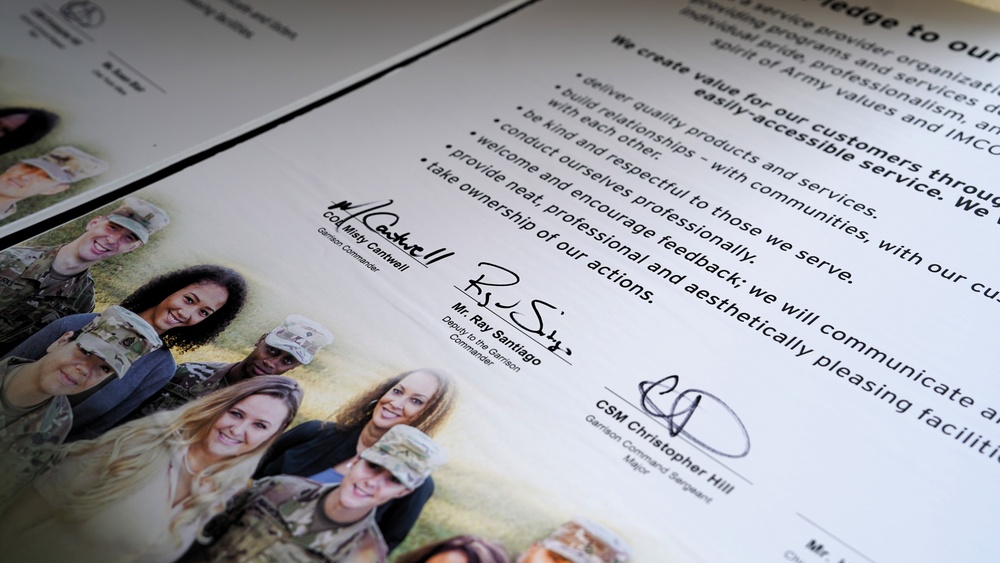 ledge to our
a service provider organizati
providing programs and services d
individual pride, professionalism, an
spirit of Army values and IMCO
We create value for our customers throug
easily-accessible service. We
• deliver quality products and services.
• build relationships – with communities, with our cus
with each other.
• be kind and respectful to those we serve.
• conduct ourselves professionally.
• welcome and encourage feedback; we will communicate a
• provide neat, professional and aesthetically pleasing faciliti
• take ownership of our actions.
M Cantwell
COL Misty Cantwell
Garrison Commander
Mr. Ray Santiago
Deputy to the Garrison
Commander
CSM Christopher Hill
Garrison Command Sergeant
Major
Mr.